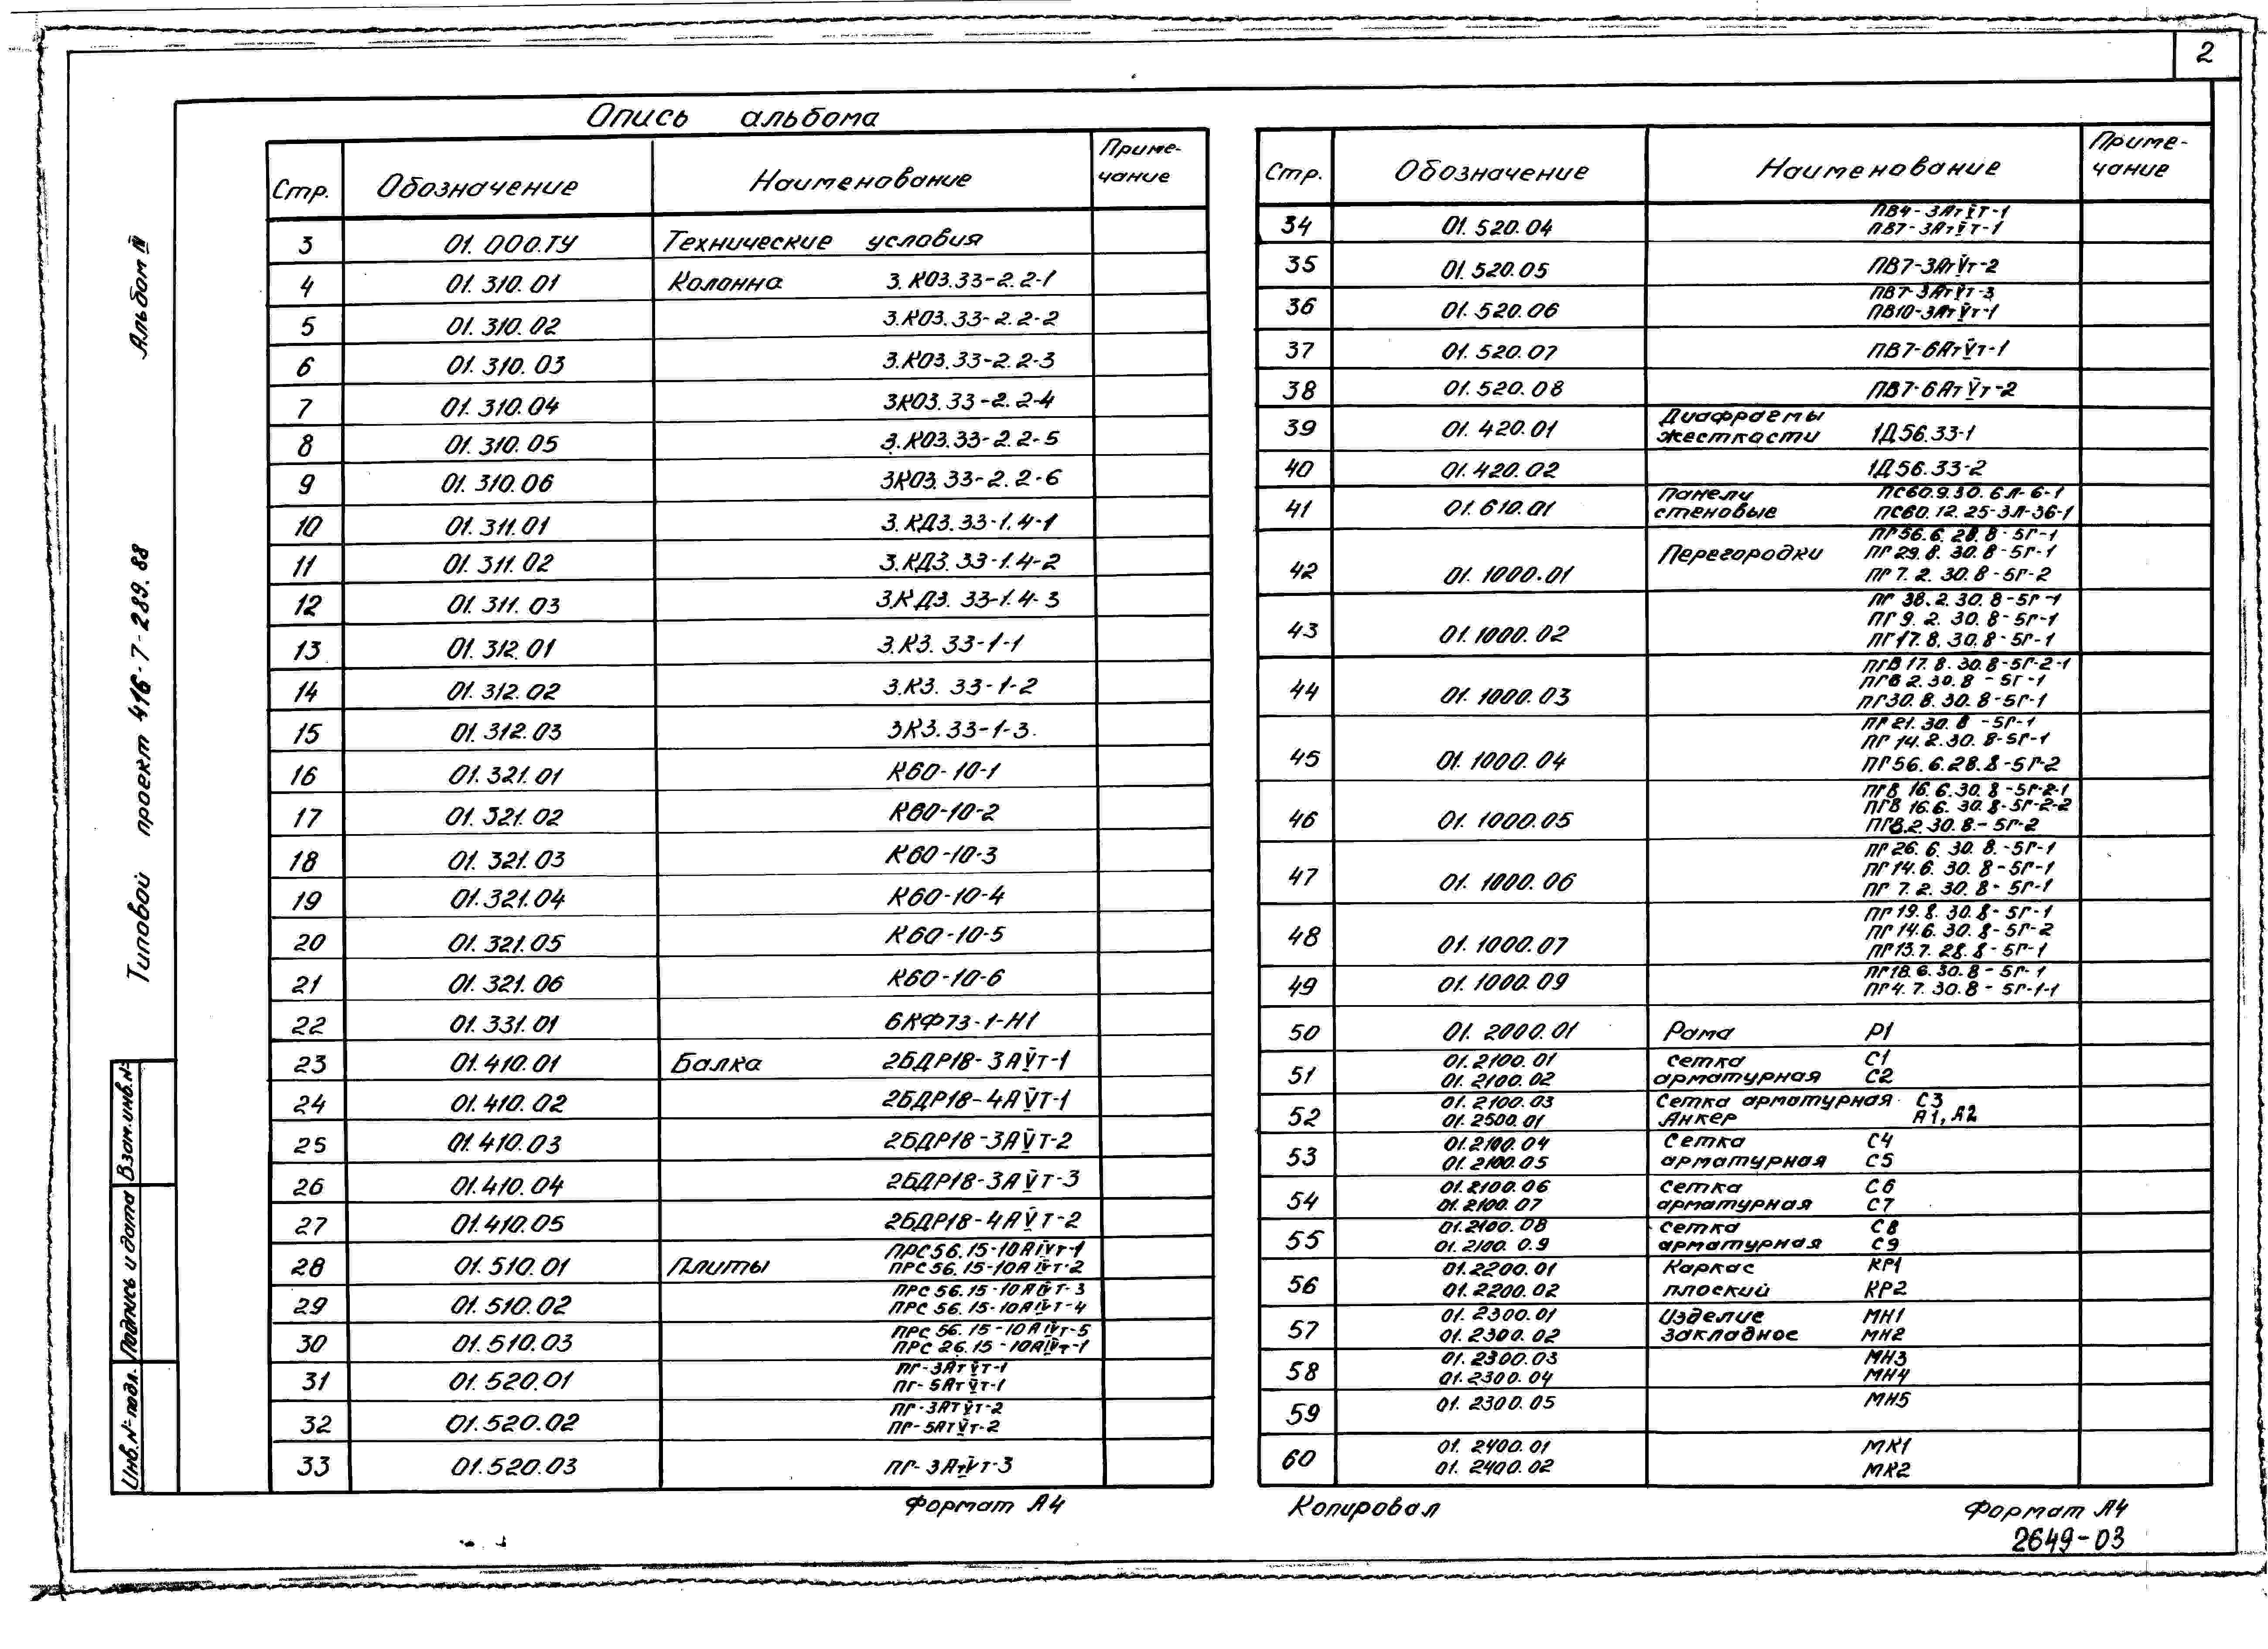 2
Опись альбома
Стр. Обозначение Наименование Приме-
чание
3 01.000.ТУ Технические условия
4 01.310.01 Колонна 3.К03.33-2.2-1
5 01.310.02 3.К03.33-2.2-2
6 01.310.03 3.К03.33-2.2-3
7 01.310.04 3К03.33-2.2-4
8 01.310.05 3.К03.33-2.2-5
9 01.310.06 3К03.33-2.2-6
10 01.311.01 3.КД3.33-1.4-1
11 01.311.02 3.КД3.33-1.4-2
12 01.311.03 3.КД3.33-1.4-3
13 01.312.01 3.К3.33-1-1
14 01.312.02 3.К3.33-1-2
15 01.312.03 3К3.33-1-3.
16 01.321.01 К60-10-1
17 01.321.02 К60-10-2
18 01.321.03 К60-10-3
19 01.321.04 К60-10-4
20 01.321.05 К60-10-5
21 01.321.06 К60-10-6
22 01.331.01 6КФ73-1-Н1
23 01.410.01 Балка 2БДР18-3АVТ-1
24 01.410.02 2БДР18-4АVТ-1
25 01.410.03 2БДР18-3АVТ-2
26 01.410.04 2БДР18-3АVТ-3
27 01.410.05 2БДР18-4АVТ-2
28 01.510.01 Плиты ПРС56.15-10АIVт-1
ПРС56.15-10АIVт-2
29 01.510.02 ПРС56.15-10АIVТ-3
ПРС56.15-10АIVТ-4
30 01.510.03 ПРС56.15-10АIVт-5
ПРС26.15-10АIVт-1
31 01.520.01 ПГ-3АтVт-1
ПГ-5АтVт-1
32 01.520.02 ПГ-3АтVт-2
ПГ-5АтVт-2
33 01.520.03 ПГ-3АтVт-3
Формат А4
Стр. Обозначение Наименование Приме-
чание
34 01.520.04 ПВ4-3АтVт-1
ПВ7-3АтVт-1
35 01.520.05 ПВ7-3АтVт-2
36 01.520.06 ПВ7-3АтVт-3
ПВ10-3АтVт-1
37 01.520.07 ПВ7-6АтVт-1
38 01.520.08 ПВ7-6АтVт-2
39 01.420.01 Диафрагмы
жесткости 1Д56.33-1
40 01.420.02 1Д56.33-2
41 01.610.01 Панели ПС60.9.30.6Л-6-1
стеновые ПС60.12.25-3Л-36-1
42 01.1000.01 Перегородки ПГ56.6.28.8-5Г-1
ПГ29.8.30.8-5Г-1
ПГ7.2.30.8-5Г-2
43 01.1000.02 ПГ38.2.30.8-5Г-1
ПГ9.2.30.8-5Г-1
ПГ17.8.30.8-5Г-1
44 01.1000.03 ПГВ17.8.30.8-5Г-2-1
ПГ6 2.30.8-5Г-1
ПГ30.8.30.8-5Г-1
45 01.1000.04 ПГ21.30.8-5Г-1
ПГ14.2.30.8-5Г-1
ПГ56.6.28.8-5Г-2
46 01.1000.05 ПГВ16.6.30.8-5Г-2-1
ПГВ16.6.30.8-5Г-2-2
ПГ8.2.30.8.-5Г-2
47 01.1000.06 ПГ26.6.30.8.-5Г-1
ПГ14.6.30.8-5Г-1
ПГ7.2.30.8-5Г-1
48 01.1000.07 ПГ19.8.30.8-5Г-1
ПГ14.6.30.8-5Г-2
ПГ13.7.28.8-5Г-1
49 01.1000.09 ПГ18.6.30.8-5Г-1
ПГ4.7.30.8-5Г-1-1
50 01.2000.01 Рама Р1
51 01.2100.01 Сетка С1
01.2100.02 арматурная С2
52 01.2100.03 Сетка арматурная С3
01.2500.01 Анкер А1, А2
53 01.2100.04 Сетка С4
01.2100.05 арматурная С5
54 01.2100.06 Сетка С6
01.2100.07 арматурная С7
55 01.2100.08 Сетка С8
01.2100.0.9 арматурная С9
56 01.2200.01 Каркас КР1
01.2200.02 плоский КР2
57 01.2300.01 Изделие МН1
01.2300.02 закладное МН2
58 01.2300.03 МН3
01.2300.04 МН4
59 01.2300.05 МН5
60 01.2400.01 МК1
01.2400.02 МК2
Копировал Формат А4
2649-03
Типовой проект 416-7-289.88 Альбом IV
Взам.инв.№
Подпись и дата
Инв.№ подл.